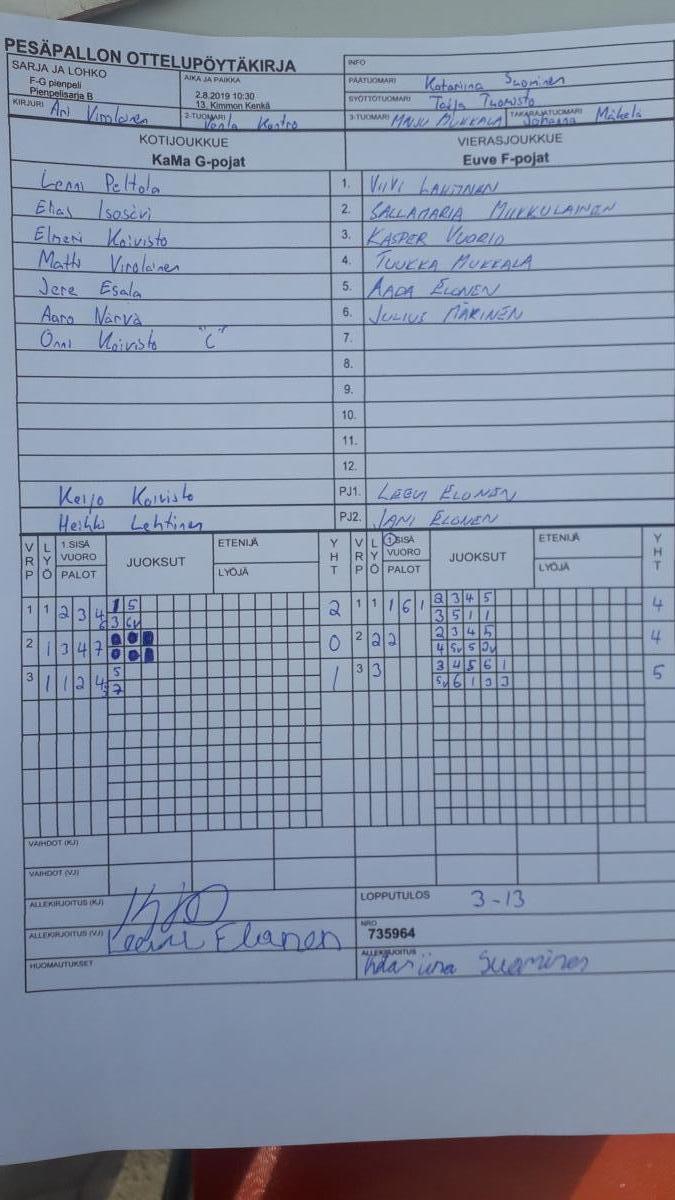 PESÄPALLON OTTELUPÖYTÄKIRJA
INFO
SARJA JA LOHKO
F-G pienpeli
Pienpelisarja B
AIKA JA PAIKKA
2.8.2019 10:30
13. Kimmon Kenkä
PÄÄTUOMARI Katariina Suominen
SYÖTTÖTUOMARI Taija Tuomisto
KIRJURI Ari Virolainen
2-TUOMARI Vonla Kontro
3-TUOMARI MINJU MUKKALA
TAKARAJATUOMARI Johanna Mäkelä
KOTIJOUKKUE VIERASJOUKKUE
KaMa G-pojat Euve F-pojat
Lenni Peltola 1. VIIVI LAHTINEN
Elias Isosävi 2. SALLAMARIA MIIKKULAINEN
Elmeri Koivisto 3. KASPER VUORIO
Matti Virolainen 4. TUUKKA MUKKALA
Jere Esala 5. AADA ELONEN
Aaro Närvä 6. JULIUS MÄKINEN
Onni Koivisto "C" 7.
8.
9.
10.
11.
12.
Keijo Koivisto PJ1. LEEVI ELONEN
Heikki Lehtinen PJ2. JANI ELONEN
VRP LYÖ 1.SISÄ VUORO PALOT JUOKSUT ETENIJÄ LYÖJÄ YHT VRP LYÖ 1.SISÄ VUORO PALOT JUOKSUT ETENIJÄ LYÖJÄ YHT
1 1 2 3 4 1 5 2 1 1 1 6 1 2 3 4 5 4
3 6v 3 5 1 1
2 1 3 4 7 0 2 2 2 2 3 4 5 4
4 5v 5 3v
3 1 1 2 4 5 1 3 3 3 4 5 6 1 5
7 5v 6 1 3 3
VAIHDOT (KJ)
VAIHDOT (VJ)
ALLEKIRJOITUS (KJ)
LOPPUTULOS 3-13
ALLEKIRJOITUS (VJ) Leevi Elonen
NRO
735964
HUOMAUTUKSET
ALLEKIRJOITUS
Katariina Suominen